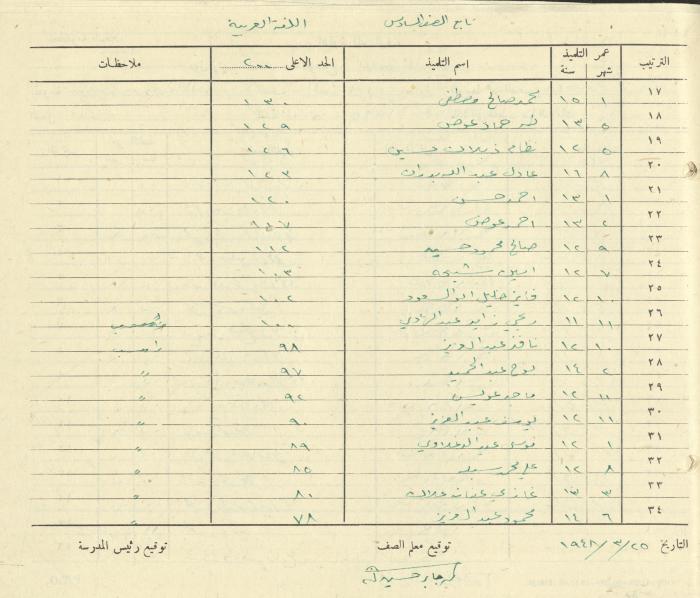 تابع الصف السادس اللغة العربية
الترتيب عمر التلميذ شهر سنة اسم التلميذ الحد الاعلى ٢٠٠ ملاحظات
١٧ ١ ١٥ محمد صالح مصطفى ١٣٠
١٨ ٥ ١٣ حماد عوض ١٢٩
١٩ ٥ ١٢ نظام حسين ١٢٦
٢٠ ٨ ١٦ عادل عبد الله بدوان ١٢٣
٢١ ١ ١٣ احمد حسن ١٢٠
٢٢ ٢ ١٣ احمد عوض
٢٣ ٩ ١٢ صالح محمود ١١٢
٢٤ ٧ ١٢ امين ١٠٣
٢٥ ١٠ ١٢ فايز خليل ابو السعود ١٠٢
٢٦ ١١ ١١ زايد عبد الهادي ١٠٠
٢٧ ١٠ ١٢ نافذ عبد العزيز ٩٨ راسب
٢٨ ٢ ١٤ نوح عبد الحميد ٩٧ "
٢٩ ١١ ١٢ ماجد عويس ٩٢ "
٣٠ ١١ ١٢ يوسف عبد العزيز ٩٠ "
٣١ ١ ١٢ ٨٩ "
٣٢ ٨ ١٢ علي محمد ٨٥ "
٣٣ ٣ ١٣ غازي ٨٠ "
٣٤ ٦ ١٤ محمود عبد العزيز ٧٨ "
التاريخ ٢٥/٣/١٩٤٨ توقيع معلم الصف توقيع رئيس المدرسة
جابر حسين